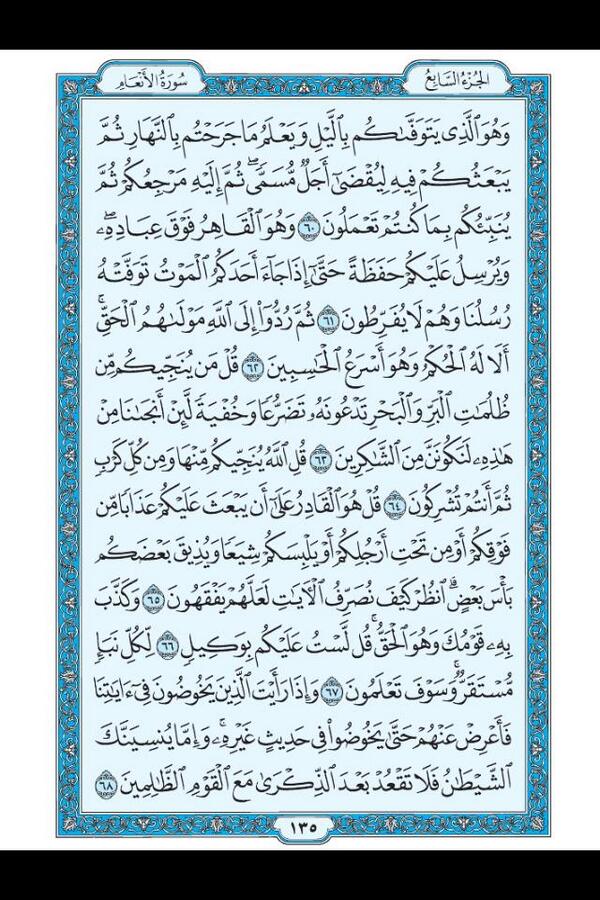 الجزء السابع
سورة الأنعام
وَهُوَ ٱلَّذِي يَتَوَفَّىٰكُم بِٱلَّيْلِ وَيَعْلَمُ مَا جَرَحْتُم بِٱلنَّهَارِ ثُمَّ
يَبْعَثُكُمْ فِيهِ لِيُقْضَىٰٓ أَجَلٌ مُّسَمًّى ۖ ثُمَّ إِلَيْهِ مَرْجِعُكُمْ ثُمَّ
يُنَبِّئُكُم بِمَا كُنتُمْ تَعْمَلُونَ ٦٠ وَهُوَ ٱلْقَاهِرُ فَوْقَ عِبَادِهِۦ ۖ
وَيُرْسِلُ عَلَيْكُمْ حَفَظَةً حَتَّىٰٓ إِذَا جَآءَ أَحَدَكُمُ ٱلْمَوْتُ تَوَفَّتْهُ
رُسُلُنَا وَهُمْ لَا يُفَرِّطُونَ ٦١ ثُمَّ رُدُّوٓا۟ إِلَى ٱللَّهِ مَوْلَىٰهُمُ ٱلْحَقِّ ۚ
أَلَا لَهُ ٱلْحُكْمُ وَهُوَ أَسْرَعُ ٱلْحَٰسِبِينَ ٦٢ قُلْ مَن يُنَجِّيكُم مِّن
ظُلُمَٰتِ ٱلْبَرِّ وَٱلْبَحْرِ تَدْعُونَهُۥ تَضَرُّعًا وَخُفْيَةً لَّئِنْ أَنجَىٰنَا مِنْ
هَٰذِهِۦ لَنَكُونَنَّ مِنَ ٱلشَّٰكِرِينَ ٦٣ قُلِ ٱللَّهُ يُنَجِّيكُم مِّنْهَا وَمِن كُلِّ كَرْبٍ
ثُمَّ أَنتُمْ تُشْرِكُونَ ٦٤ قُلْ هُوَ ٱلْقَادِرُ عَلَىٰٓ أَن يَبْعَثَ عَلَيْكُمْ عَذَابًا مِّن
فَوْقِكُمْ أَوْ مِن تَحْتِ أَرْجُلِكُمْ أَوْ يَلْبِسَكُمْ شِيَعًا وَيُذِيقَ بَعْضَكُم
بَأْسَ بَعْضٍ ۗ ٱنظُرْ كَيْفَ نُصَرِّفُ ٱلْءَايَٰتِ لَعَلَّهُمْ يَفْقَهُونَ ٦٥ وَكَذَّبَ
بِهِۦ قَوْمُكَ وَهُوَ ٱلْحَقُّ ۚ قُل لَّسْتُ عَلَيْكُم بِوَكِيلٍ ٦٦ لِّكُلِّ نَبَإٍ
مُّسْتَقَرٌّ ۚ وَسَوْفَ تَعْلَمُونَ ٦٧ وَإِذَا رَأَيْتَ ٱلَّذِينَ يَخُوضُونَ فِىٓ ءَايَٰتِنَا
فَأَعْرِضْ عَنْهُمْ حَتَّىٰ يَخُوضُوا۟ فِى حَدِيثٍ غَيْرِهِۦ ۚ وَإِمَّا يُنسِيَنَّكَ
ٱلشَّيْطَٰنُ فَلَا تَقْعُدْ بَعْدَ ٱلذِّكْرَىٰ مَعَ ٱلْقَوْمِ ٱلظَّٰلِمِينَ ٦٨
١٣٥